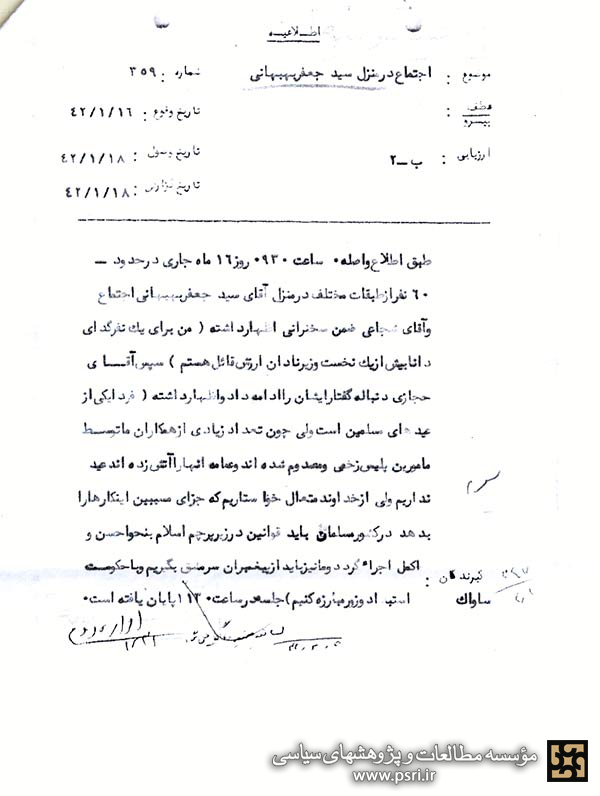 اطلاعیه
موضوع : اجتماع در منزل سید جعفر بهبهانی
شماره : ۳۵۹
عطف
پیرو :
تاریخ وقوع : ۴۲/۱/۱۶
ارزیابی : ب ــ ۲
تاریخ وصول : ۴۲/۱/۱۸
تاریخ گزارش : ۴۲/۱/۱۸
طبق اطلاع واصله ۰ ساعت ۰۹۳۰ روز ۱۶ ماه جاری در حدود ــ
۶۰ نفر از طبقات مختلف در منزل آقای سید جعفر بهبهانی اجتماع
وآقای شجاعی ضمن سخنرانی اظهار داشته ( من برای یك نفر گدای
دانا بیش از یك نخست وزیر نادان ارزش قائل هستم ) سپس آقـــای
حجازی دنباله گفتار ایشان را ادامه داد و اظهار داشته ( فردا یکی از
عید های مسلمین است ولی چون تعداد زیادی از همکاران ما توســط
مامورین پلیس زخمی و مصدوم شده اند و عمامه انها را آتش زده اند عید
نداریم ولی از خداوند متعال خواستاریم که جزای مسببین اینکارها را
بدهد در کشور مسلمان باید قوانین در زیر پرچم اسلام بنحو احسن و
اکمل اجراء گردد و مانیز باید از پیغمبران سرمشق بگیریم و با حکومت
استبداد و زور مبارزه کنیم ) جلسه در ساعت ۱۱۳۰ پایان یافته است۰
گیرندگان :
ساواك
اداره دوم
۱/۲۱
مؤسسه مطالعات و پژوهشهای سیاسی
www.psri.ir